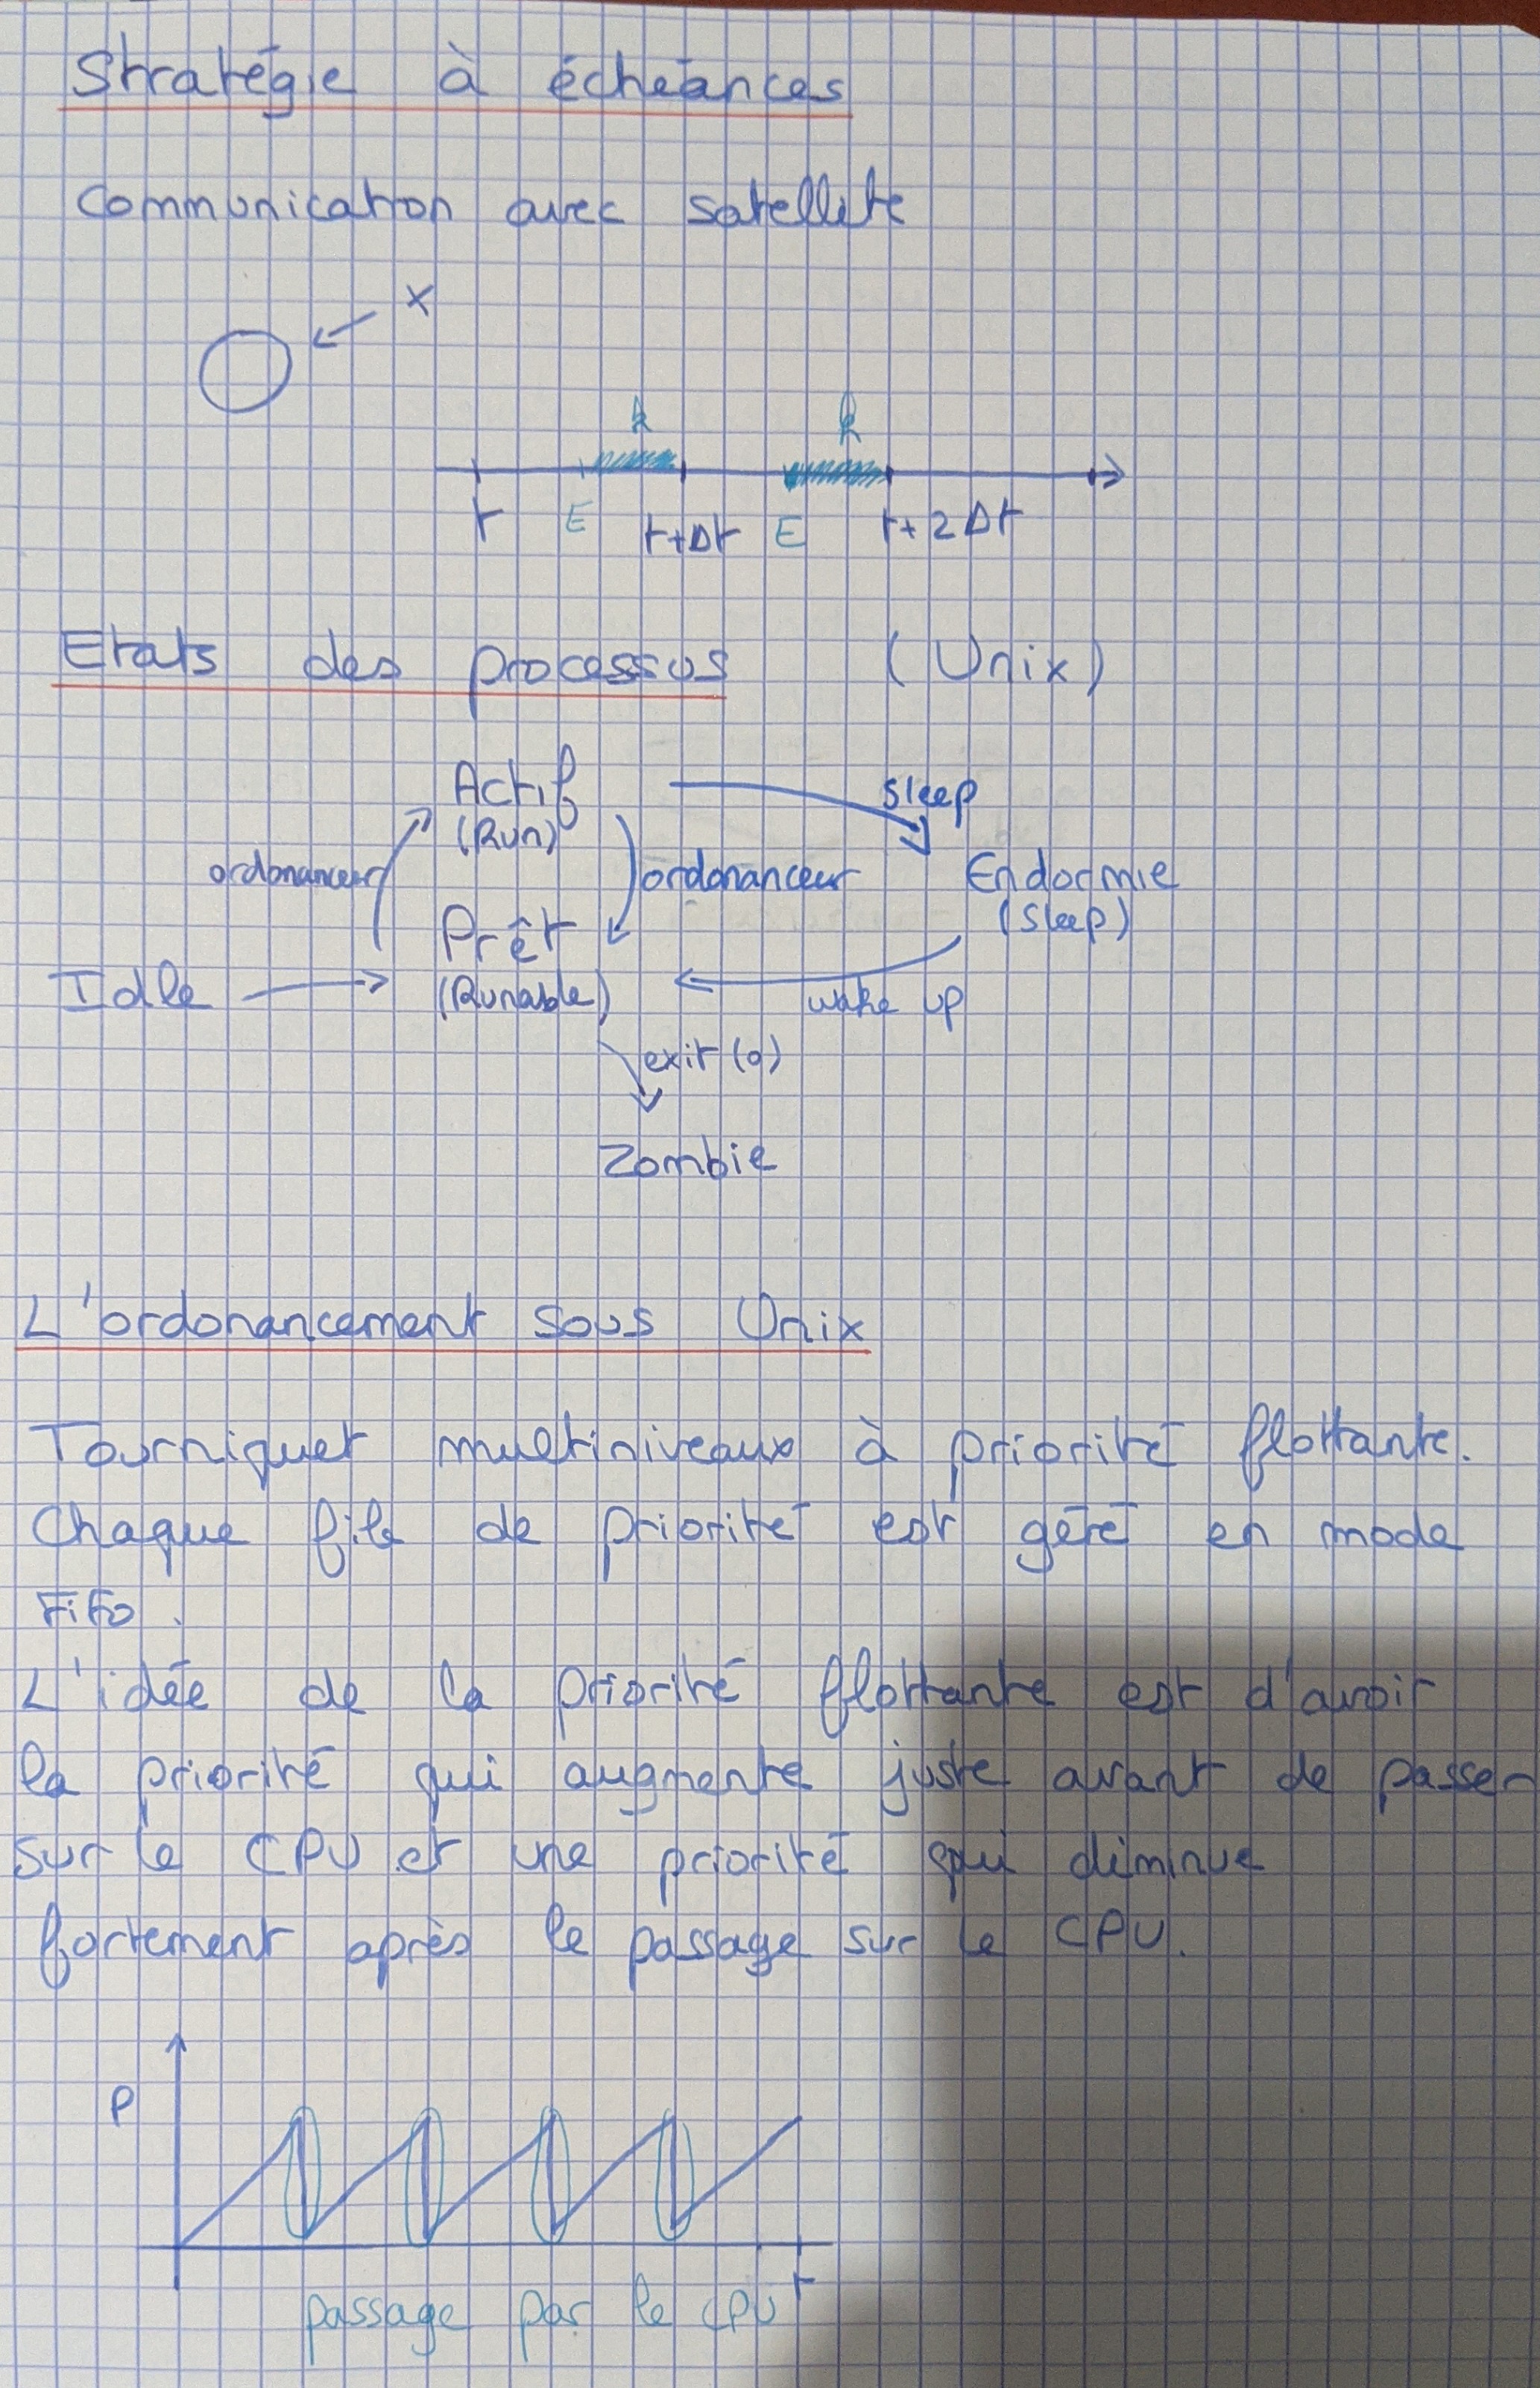 Stratégie à échéances
Communication avec satellite
X
k k
t E t+Δt E t+2Δt
Etats des processus (Unix)
Actif
(Run)
sleep
ordonanceur
ordonanceur
Endormie
(Sleep)
Prêt
(Runable)
Idle
wake up
exit(0)
Zombie
L'ordonancement sous Unix
Tourniquet multiniveaux à priorité flottante.
Chaque file de priorité est géré en mode
FiFo.
L'idée de la priorité flottante est d'avoir
la priorité qui augmente juste avant de passer
sur le CPU et une priorité qui diminue
fortement après le passage sur le CPU.
P
t
passage par le CPU